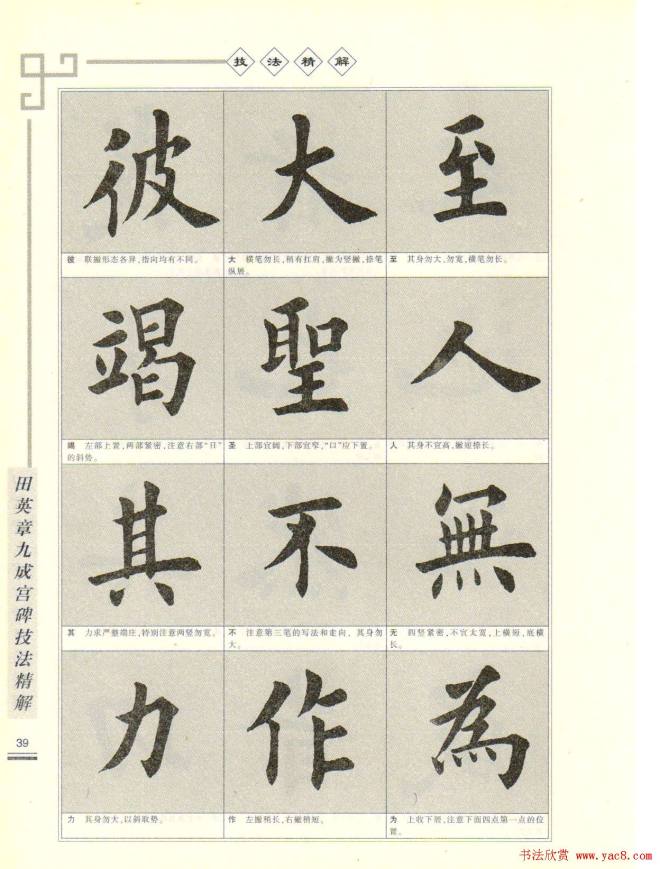 技法精解
彼 大 至
彼 联撇形态各异,指向均有不同。
大 横笔勿长,稍有扛肩,撇为竖撇,捺笔
纵展。
至 其身勿大,勿宽,横笔勿长。
竭 聖 人
竭 左部上置,两部紧密,注意右部“日”
的斜势。
圣 上部宜阔,下部宜窄,“口”应下置。
人 其身不宜高,撇短捺长。
其 不 無
其 力求严整端庄,特别注意两竖勿宽。
不 注意第三笔的写法和走向,其身勿
大。
无 四竖紧密,不宜太宽,上横短,底横
长。
力 作 為
力 其身勿大,以斜取势。
作 左撇稍长,右撇稍短。
为 上收下展,注意下面四点第一点的位
置。
田英章九成宫碑技法精解
39
书法欣赏 www.yac8.com